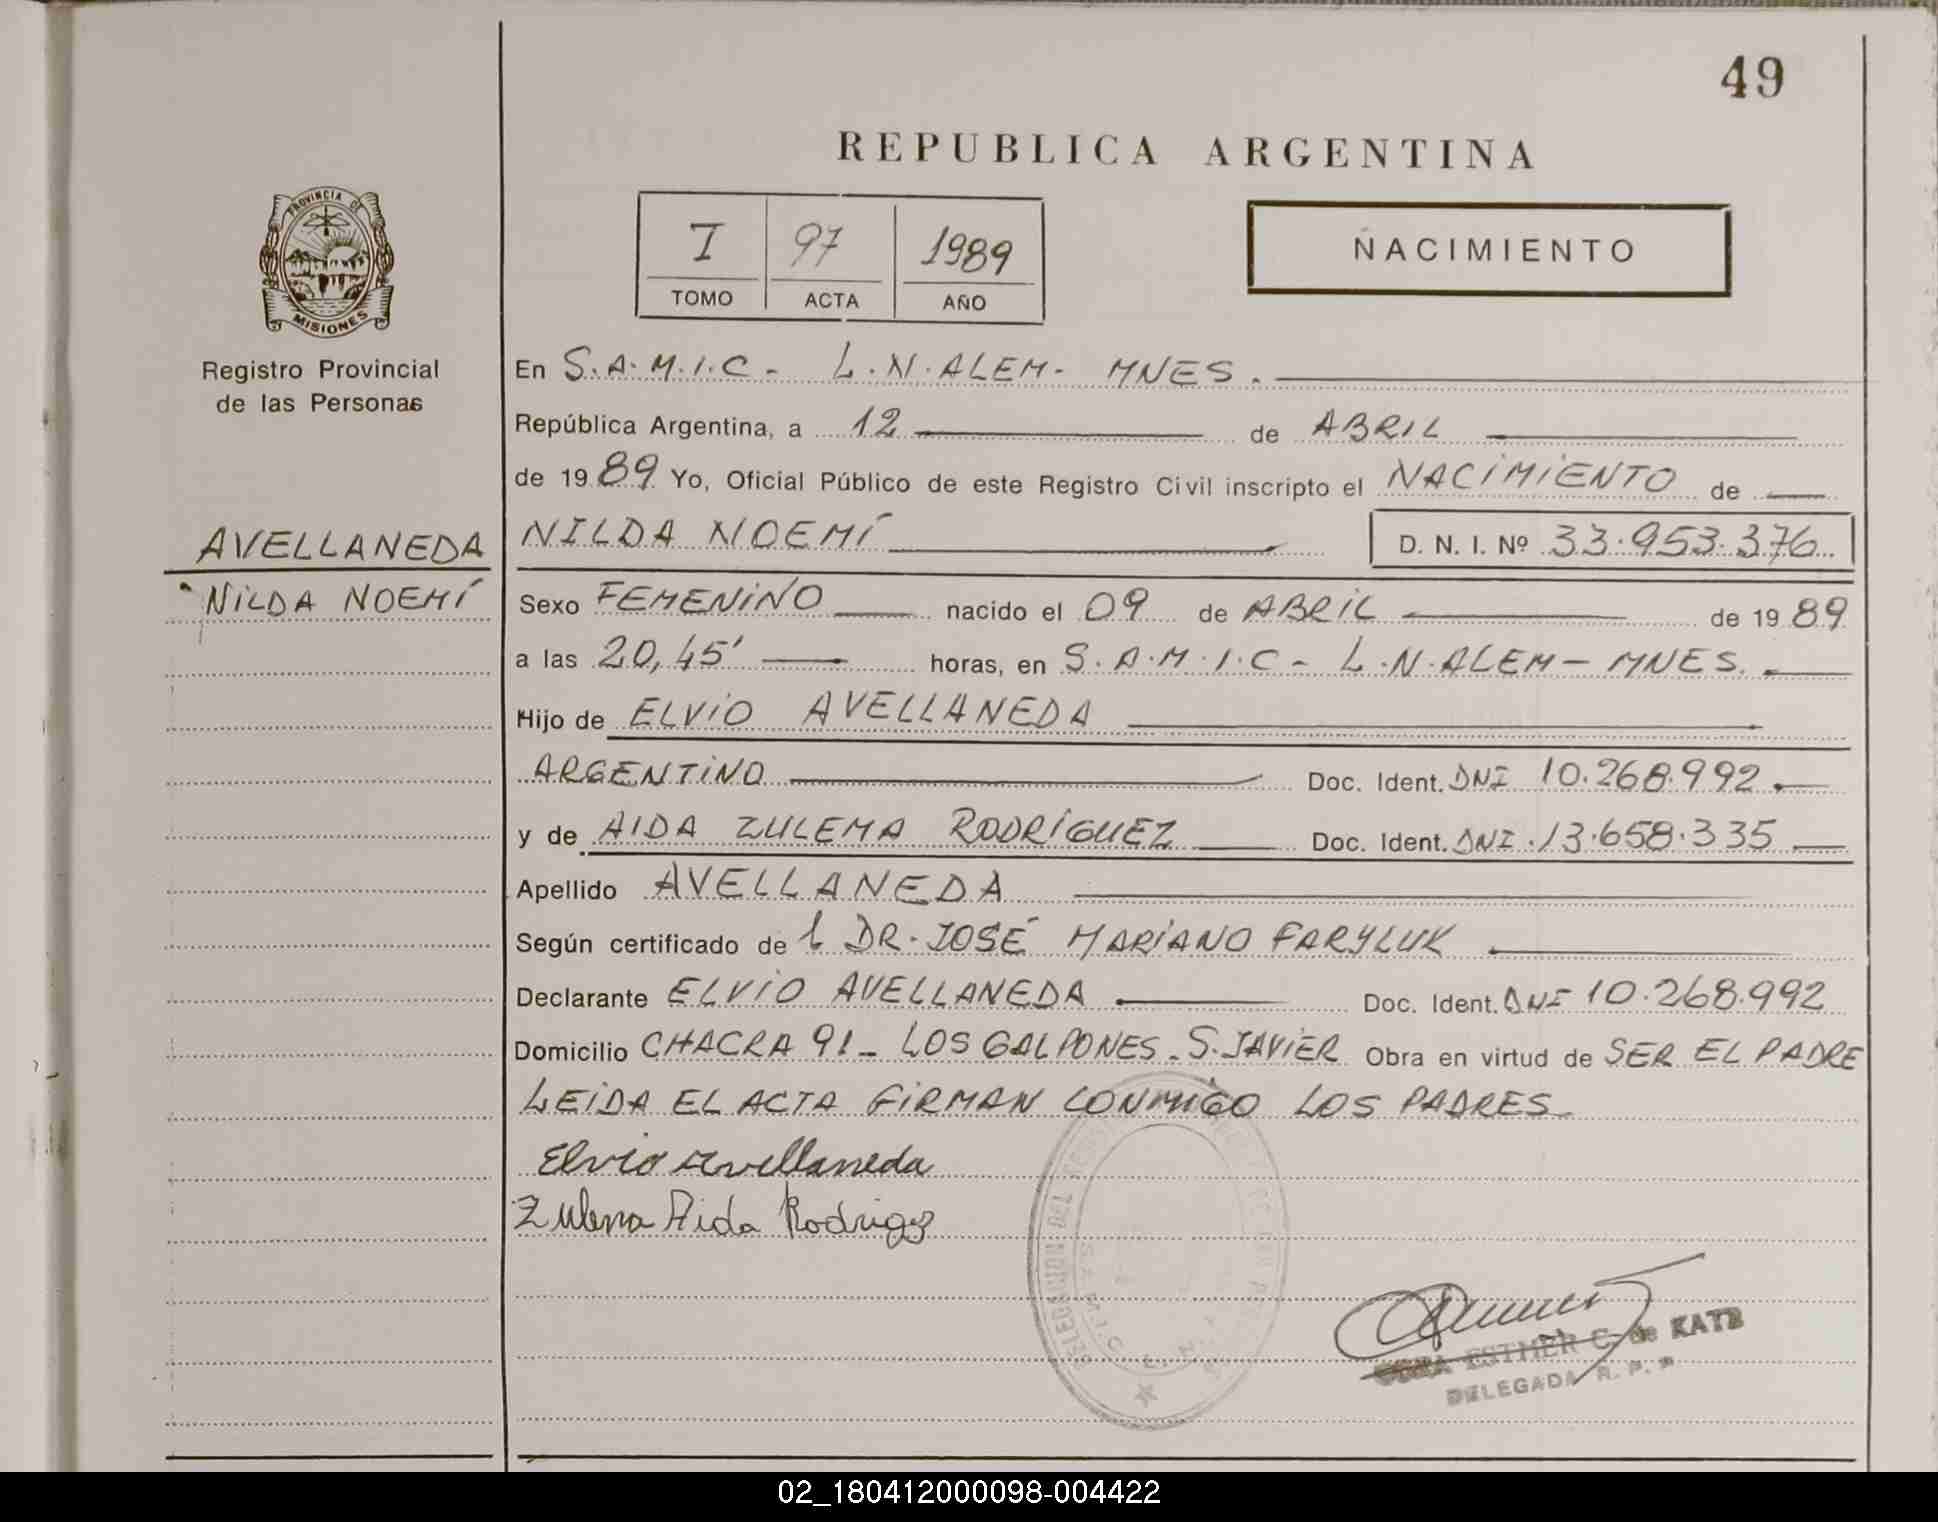 49
REPUBLICA ARGENTINA
PROVINCIA DE
MISIONES
Registro Provincial
de las Personas
I 97 1989
TOMO ACTA AÑO
NACIMIENTO
En S.A.M.I.C. - L.N.ALEM- MNES.
República Argentina, a 12 de ABRIL
de 1989 Yo, Oficial Público de este Registro Civil inscripto el NACIMIENTO de
AVELLANEDA
NILDA NOEMÍ
NILDA NOEMÍ D. N. I. Nº 33.953.376
Sexo FEMENINO nacido el 09 de ABRIL de 1989
a las 20,45' horas, en S.A.M.I.C- L.N.ALEM- MNES.
Hijo de ELVIO AVELLANEDA
ARGENTINO Doc. Ident. DNI 10.268.992
y de AIDA ZULEMA RODRÍGUEZ Doc. Ident. DNI 13.658.335
Apellido AVELLANEDA
Según certificado de l DR. JOSÉ MARIANO FARYLUK
Declarante ELVIO AVELLANEDA Doc. Ident. DNI 10.268.992
Domicilio CHACRA 91- LOS GALPONES- S. JAVIER Obra en virtud de SER EL PADRE
LEIDA EL ACTA FIRMAN CONMIGO LOS PADRES
Elvio Avellaneda
Zulema Aida Rodrigez
DELEGACION DEL
ESTHER C. de KATZ
DELEGADA R. P. P
02_180412000098-004422